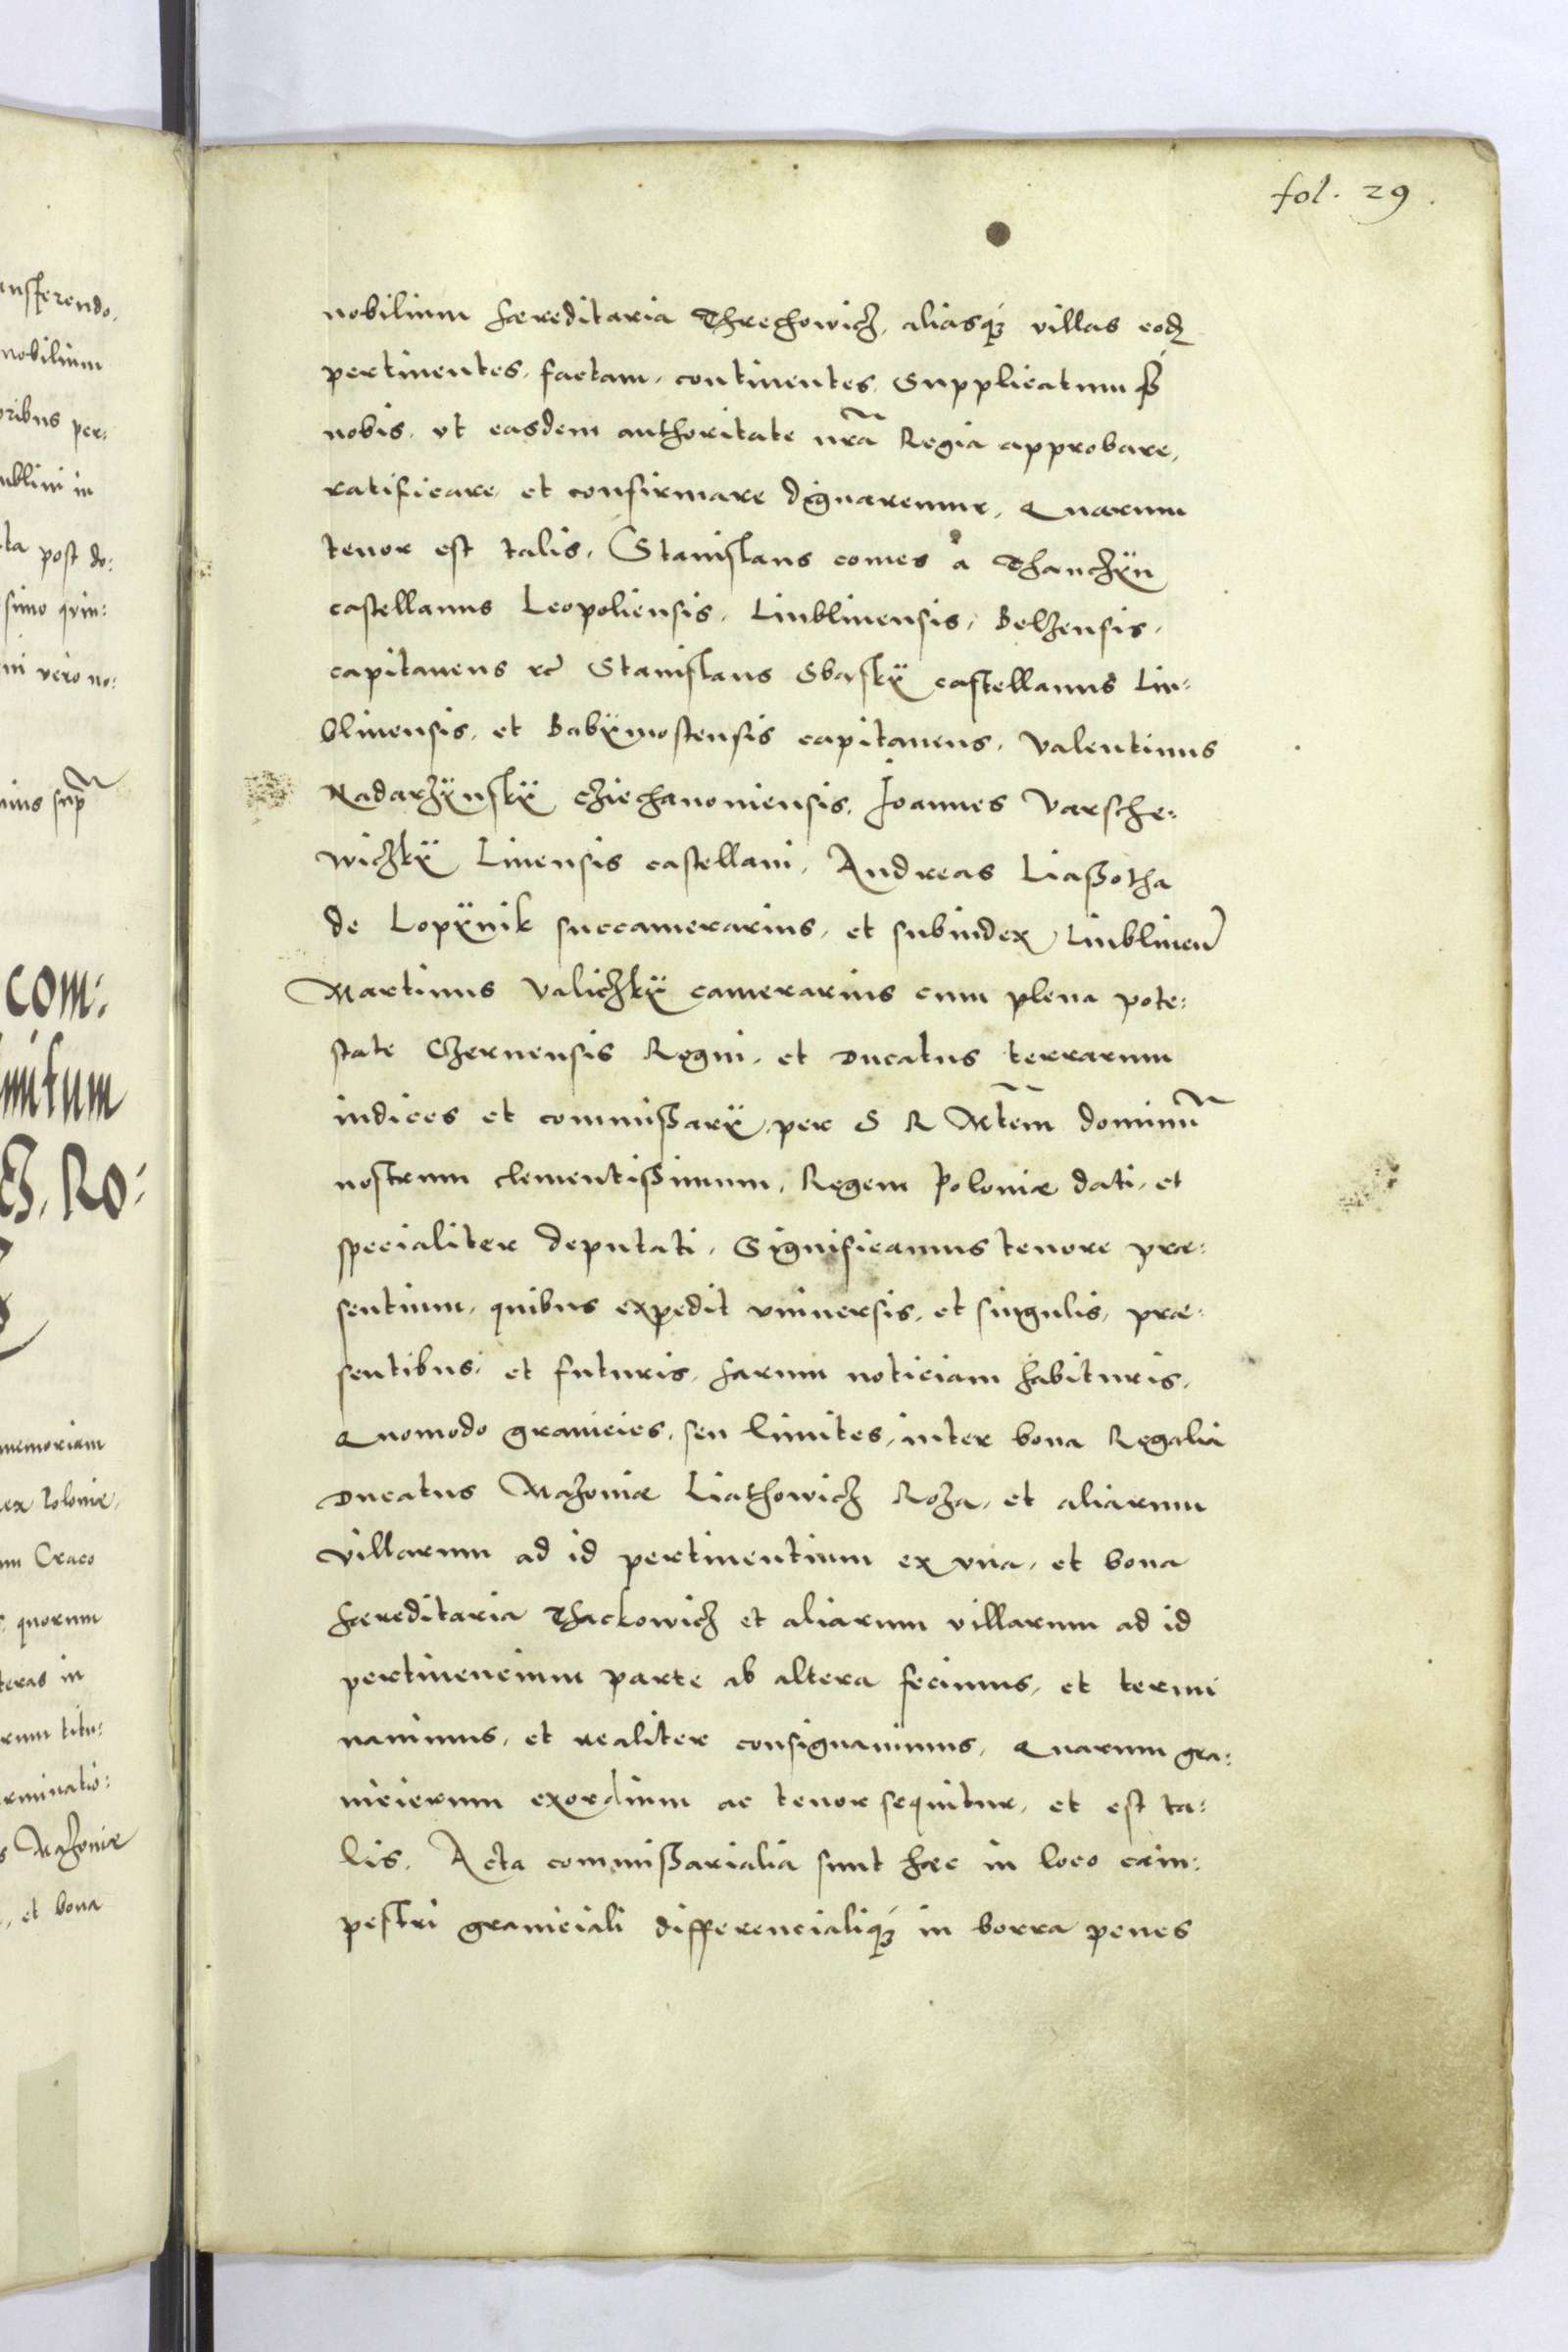 fol. 29.
nobilium hæreditaria Threchowicz, aliasq; villas eod
pertinentes, factam, continentes. Supplicatum
nobis, vt easdem authoritate nr̃a Regia approbare,
ratificare, et confirmare dignaremur, Quarum
tenor est talis, Stanislaus comes à Thanczÿn
castellanus Leopoliensis, Liublinensis, Belzensis,
capitaneus rc̃ Stanislaus Sbaskÿ castellanus Liu:
blinensis, et Babÿmostensis capitaneus, Valentinus
Nadarzÿnskÿ Cziechanoniensis, Joannes Varsche:
wiczkÿ Liuensis castellani, Andreas Liaßotha
de Lopÿnik succamerarius, et subiudex Liublinen̄
Martinus Valiczkÿ camerarius cum plena pote:
state Czernensis Regni, et Ducatus terrarum
iudices et commißarÿ, per S R Mtem̃ dominũ
nostrum clementißimum, Regem Poloniæ dati, et
specialiter deputati, Significamus tenore præ:
sentium, quibus expedit vniuersis, et singulis, præ:
sentibus, et futuris, harum noticiam habituris,
Quomodo granicies, seu limites, inter bona Regalia
Ducatus Mazoniæ Liathowicz Roza, et aliarum
villarum ad id pertinentium ex vna, et bona
hæreditaria Thackowicz et aliarum villarum ad id
pertinencium parte ab altera fecimus, et termi
nauimus, et realiter consignauimus, Quarum gra:
nicierum exordium ac tenor sequitur, et est ta:
lis. Acta commißarialia sunt hæc in loco cam:
pestri graniciali differencialiq; in borra penes
ansferendo,
nobilium
oribus per:
ublini in
ta post do:
simo quin:
ni vero no:
com:
mitum
Ro:
memoriam
ex Poloniæ,
um Craco
quorum
teras in
rum titu:
rminatio:
s Mazoniæ
, et bona